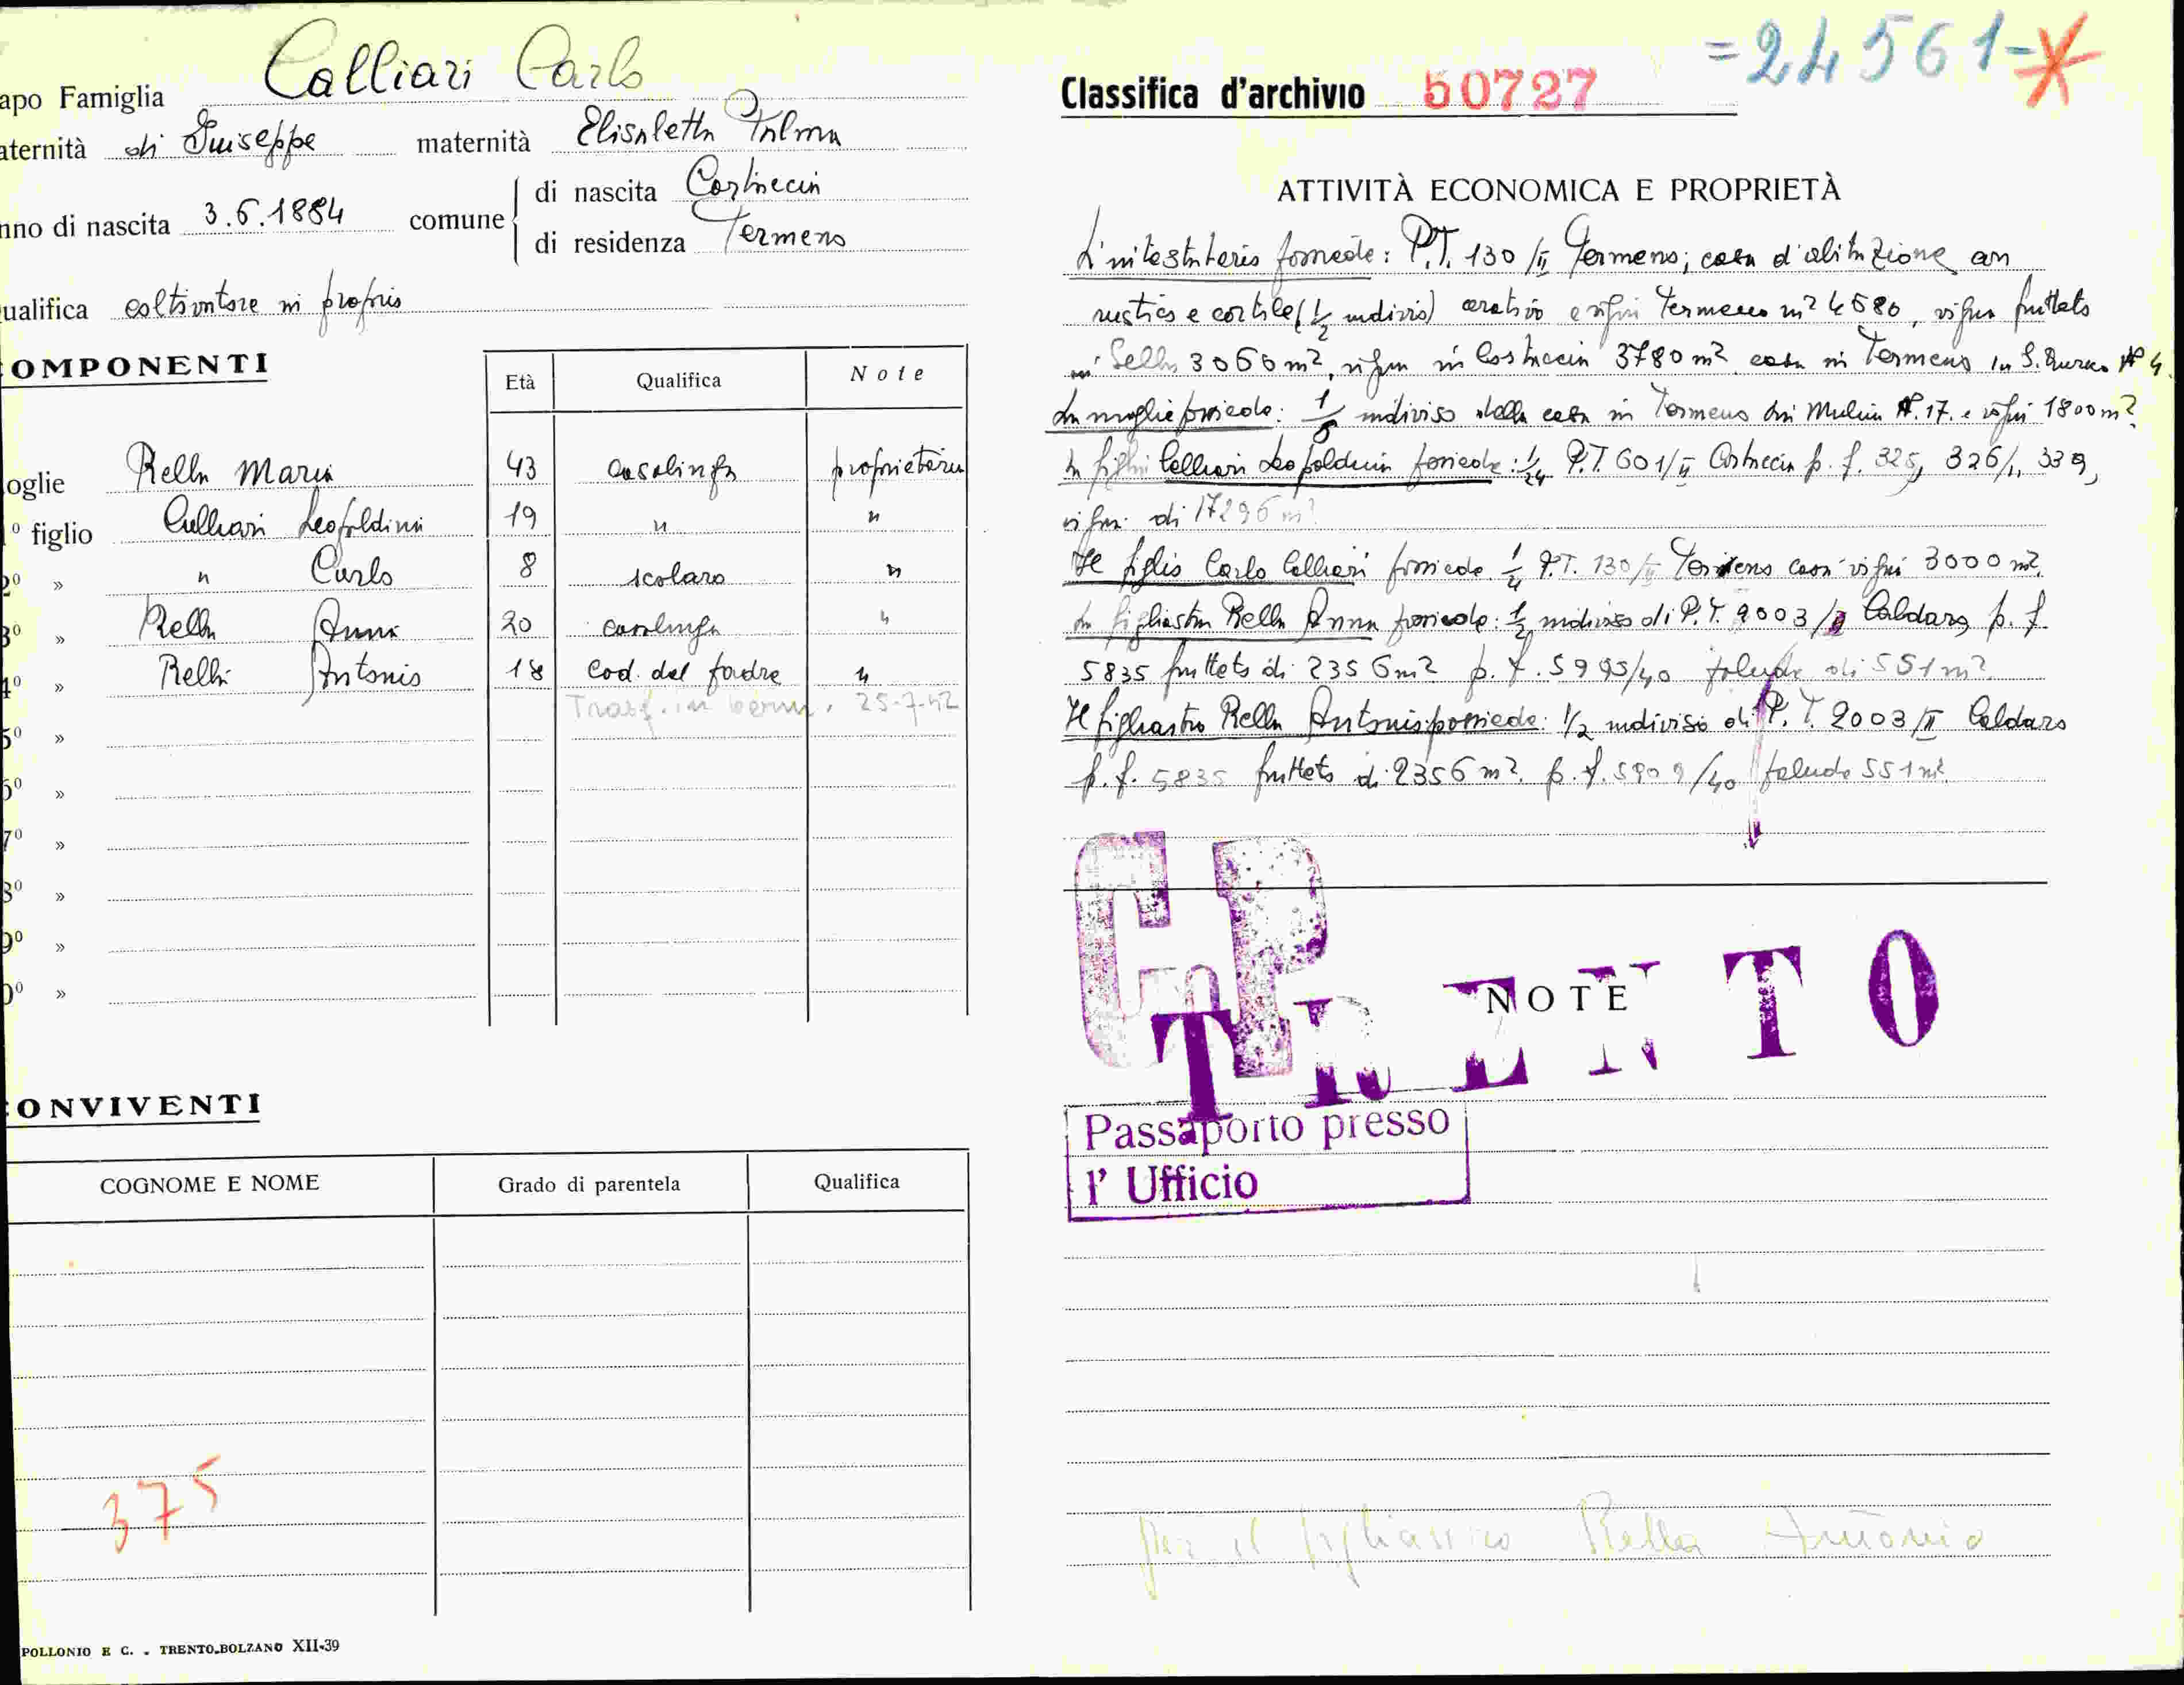 apo Famiglia Calliari Carlo
aternità di Giuseppe maternità Elisabetta Palma
nno di nascita 3.6.1884 comune di nascita Cortaccia
di residenza Termeno
ualifica coltivatore in proprio
OMPONENTI
Età Qualifica Note
oglie Rella Maria 43 casalinga proprietaria
1º figlio Calliari Leopoldina 19 " "
2º » " Carlo 8 scolaro "
3º » Rella Anna 20 casalinga "
4º » Rella Antonio 18 Cod. del padre "
Trasf. in Germ. 25-7-42
5º »
6º »
7º »
8º »
9º »
0º »
ONVIVENTI
COGNOME E NOME Grado di parentela Qualifica
375
POLLONIO E C. - TRENTO-BOLZANO XII-39
=24561-
Classifica d'archivio 50727
ATTIVITÀ ECONOMICA E PROPRIETÀ
L'intestatario possiede: P.T. 130/II Termeno; casa d'abitazione con
rustico e cortile (1/2 indiviso) arativo e vigna Termeno m² 4580, vigna frutteto
in Sella 3060 m², vigna in Cortaccia 3780 m² casa in Termeno in S. Quirico Nº 4.
La moglie possiede: indiviso della casa in Termeno dei Mulini Nº 17. e vigna 1800 m²
La figlia Calliari Leopoldina possiede: 1/24 P.T. 601/II Cortaccia p. f. 325, 326/1, 339,
vigna di 17296 m²
Il figlio Carlo Calliari possiede 1/4 P.T. 130/II Termeno casa vigna 3000 m².
La figliastra Rella Anna possiede: 1/2 indiviso di P.T. 2003/II Caldaro, p. f.
5835 frutteto di 2356 m² p. f. 5995/40 palude di 551 m².
Il figliastro Rella Antonio possiede: 1/2 indiviso di P.T. 2003/II Caldaro
p. f. 5835 frutteto di 2356 m². p. f. 5909/40 palude 551 m².
CP
TRENTO
NOTE
Passaporto presso
l' Ufficio
per il figliastro Rella Antonio